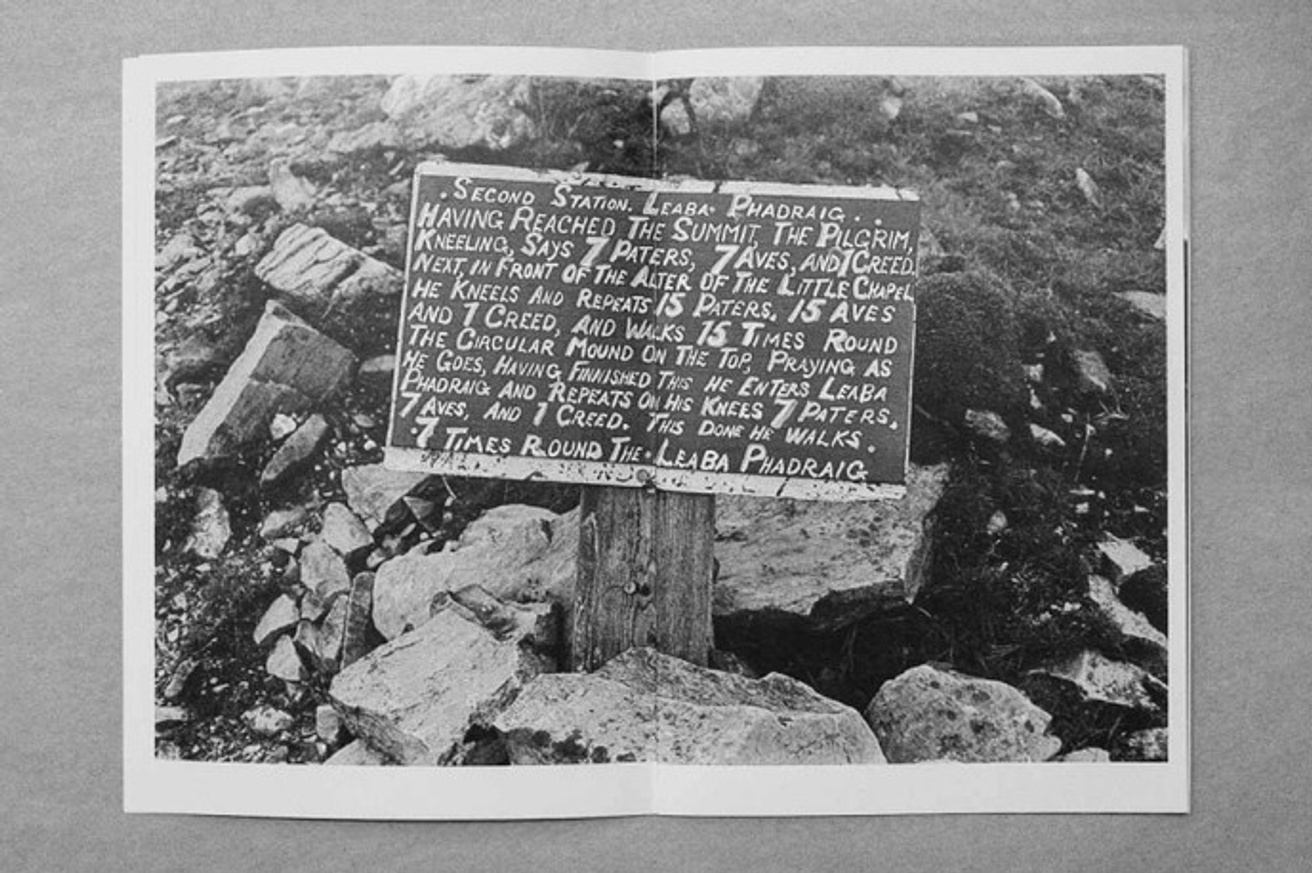 . SECOND STATION. LEABA. PHADRAIG . .
HAVING REACHED THE SUMMIT, THE PILGRIM,
KNEELING, SAYS 7 PATERS, 7 AVES, AND 1 CREED.
NEXT, IN FRONT OF THE ALTER OF THE LITTLE CHAPEL
HE KNEELS AND REPEATS 15 PATERS. 15 AVES
AND 1 CREED, AND WALKS 15 TIMES ROUND
THE CIRCULAR MOUND ON THE TOP, PRAYING AS
HE GOES, HAVING FINNISHED THIS HE ENTERS LEABA
PHADRAIG AND REPEATS ON HIS KNEES 7 PATERS,
7 AVES, AND 1 CREED. THIS DONE HE WALKS.
.7 TIMES ROUND THE. LEABA PHADRAIG